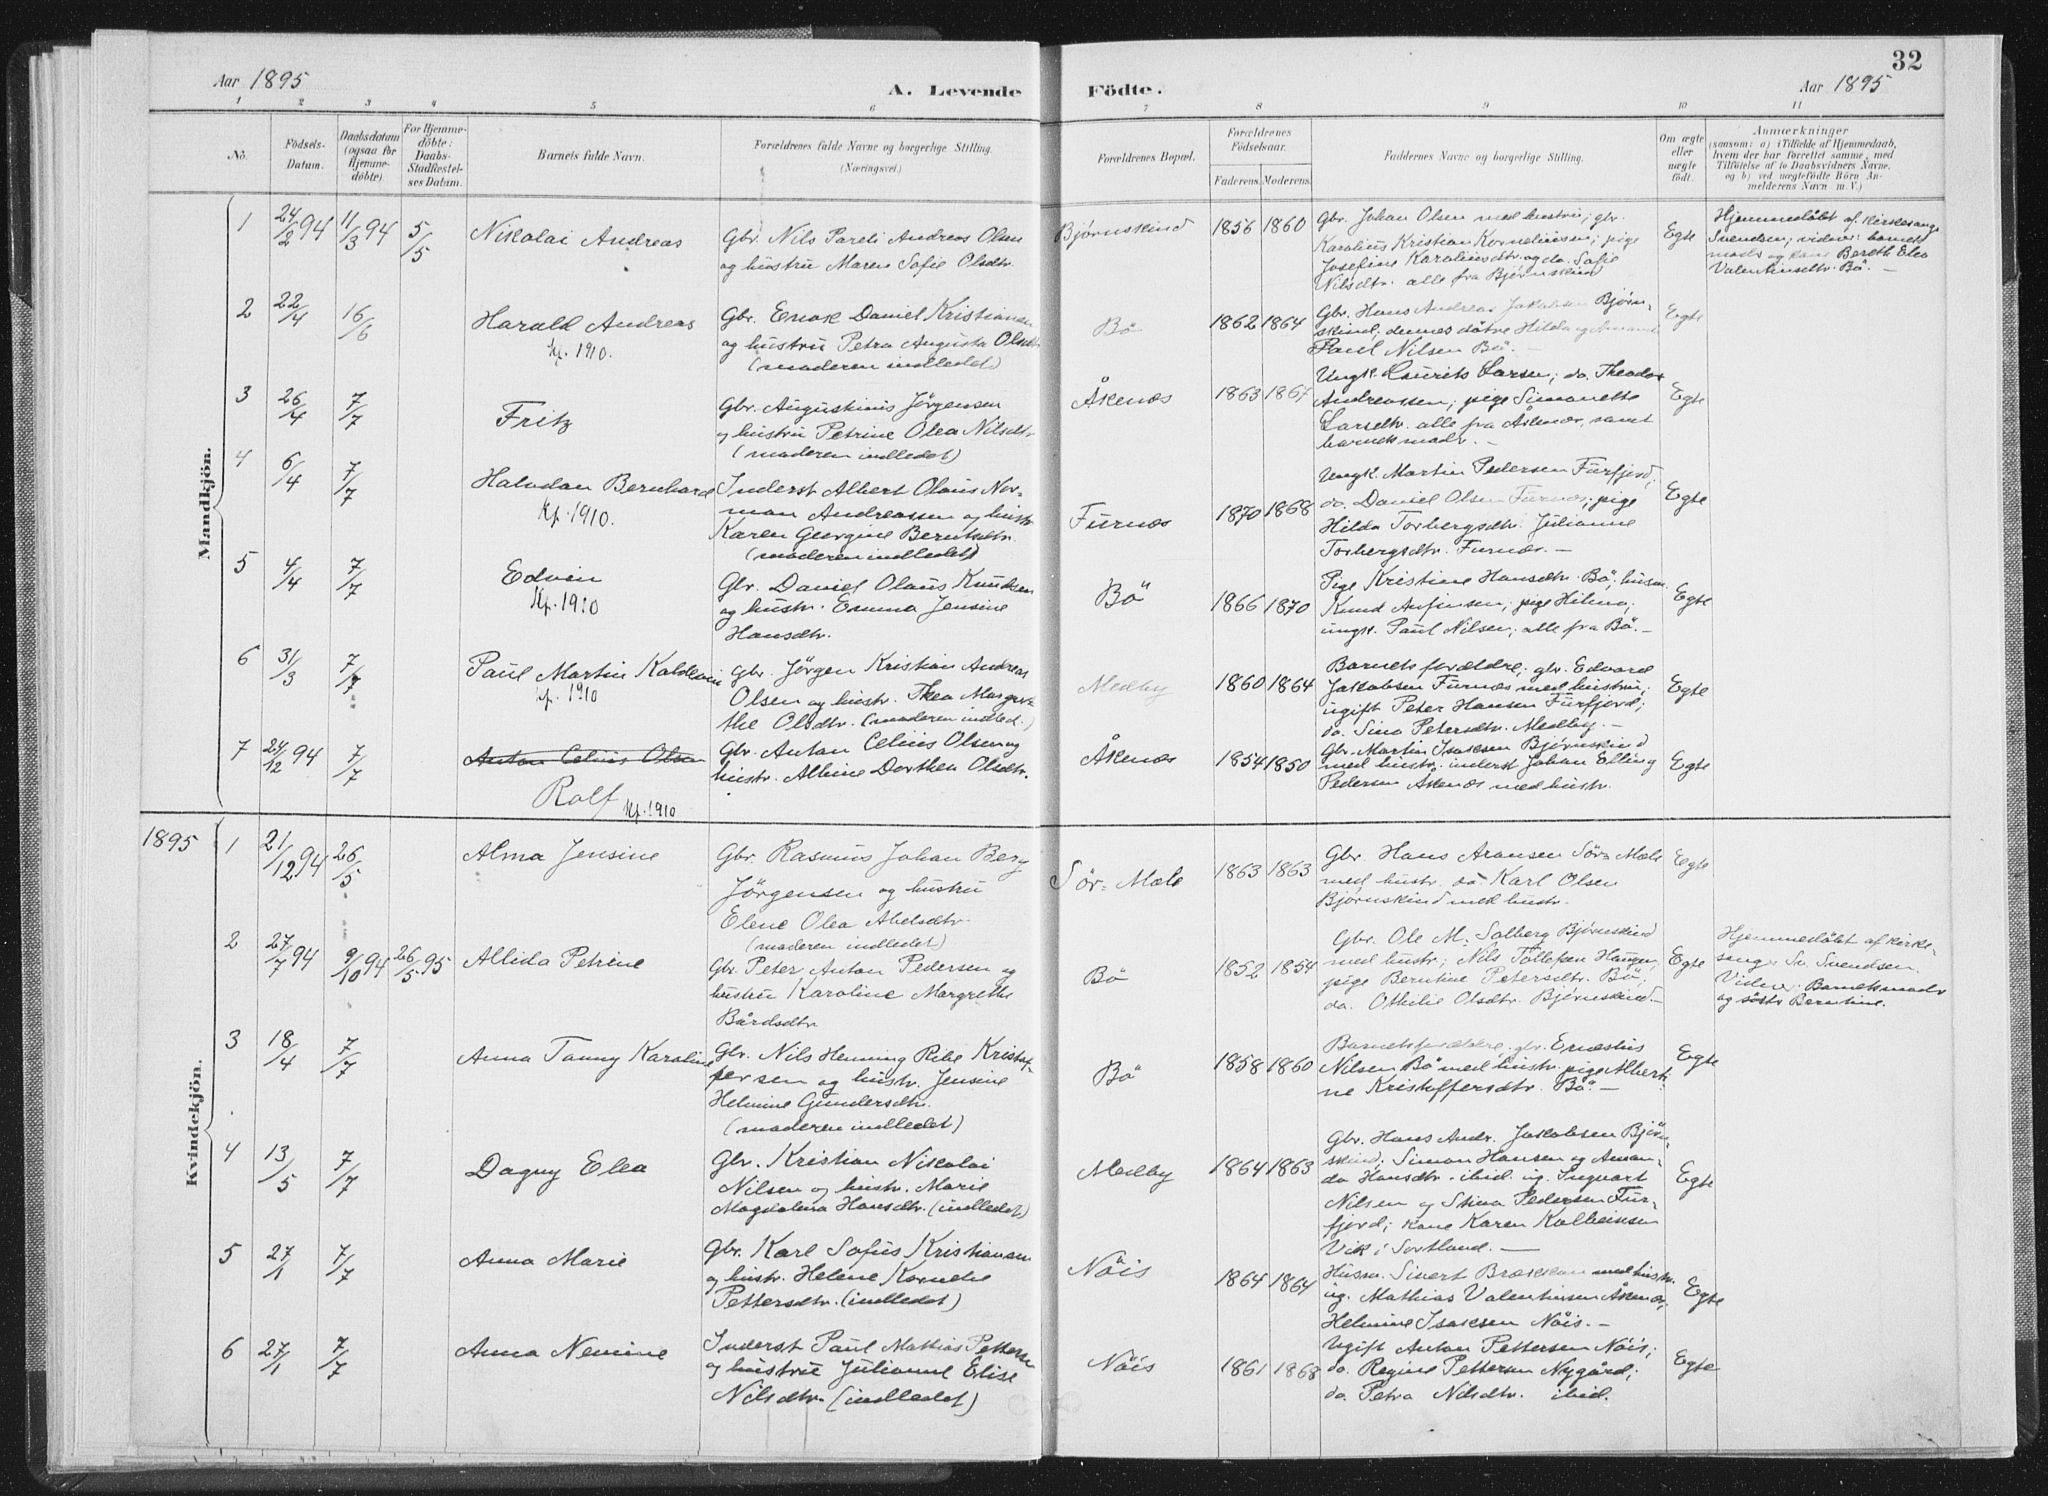 32
Aar 1895
A. Levende Födte.
Aar 1895
1 2 3 4 5 6 7 8 9 10 11
No.
Födsels-Datum.
Daabsdatum (ogsaa for Hjemme-döbte).
For Hjemme-döbte: Daabs-Stadfæstel-ses Datum.
Barnets fulde Navn.
Forældrenes fulde Navne og borgerlige Stilling. (Næringsvei.)
Forældrenes Bopæl.
Forældrenes Födselsaar.
Faderens. Moderens.
Faddernes Navne og borgerlige Stilling.
Om ægte eller uægte födt.
Anmærkninger
(saasom: a) i Tilfælde af Hjemmedaab,
hvem der har forrettet samme, med
Tilföielse af to Daabsvidners Navne,
og b) ved uægtefödte Börn An-
melderens Navn m. V.)
Mandkjön.
1 24/2 94 11/3 94 5/5
Nikolai Andreas
Gbr. Nils Pareli Andreas Olsen
og hustru Maren Sofie Olsdtr.
Bjørnskind
1856 1860
Gbr. Johan Olsen med hustru; gbr.
Karolius Kristian Korneliussen; pige
Josefine Karoliusdtr. og do. Sofie
Nilsdtr. alle fra Bjørnskind
Egte
Hjemmedöbt af kirkesang.
Svendsen; vidner: barnets
moder og kone Bereth Elea
Valentinsdtr. Bö. —
2 22/4 16/6
Harald Andreas
kf. 1910.
Gbr. Enok Daniel Kristiansen
og hustru Petra Augusta Olsdtr.
(moderen indledet)
Bö
1862 1864
Gbr. Hans Andreas Jakobsen Bjørn-
skind; dennes dötre Hilda og Amanda
Paul Nilsen Bö. —
Egte
3 26/4 7/7
Fritz
Gbr. Augustinus Jörgensen
og hustru Petrine Olea Nilsdtr.
(moderen indledet)
Åkenæs
1863 1867
Ungk. Laurits Larsen; do. Theodor
Andreassen; pige Simonette
Larsdtr. alle fra Åkenæs, samt
barnets moder. —
Egte
4 6/4 7/7
Halvdan Bernhard
kf. 1910.
Inderst Albert Olaus Nor-
man Andreassen og hustr.
Karen Georgine Berntsdtr.
(moderen indledet)
Furnæs
1870 1868
Ungk. Martin Pedersen Furfjord;
do. Daniel Olsen Furnæs; pige
Hilda Torbergsdtr. Julianne
Torbergsdtr. Furnæs. —
Egte
5 4/4 7/7
Edvin
kf. 1910
Gbr. Daniel Olaus Knudsen
og hustr. Emma Jensine
Hansdtr.
Bö
1866 1870
Pige Kristine Hansdtr. Bö; husm.
Knud Anfinsen; pige Hilma;
ungk. Paul Nilsen; alle fra Bö. —
Egte
6 31/3 7/7
Paul Martin Kaldevin
kf. 1910
Gbr. Jörgen Kristian Andreas
Olsen og hustr. Thea Margre-
the Olsdtr. (moderen indled.)
Medby
1860 1864
Barnets forældre; gbr. Edvard
Jakobsen Furnæs med hustru;
ugift Peter Hansen Furfjord;
do. Sina Petersdtr. Medby. —
Egte
7 24/12 94 7/7
Anton Celius Olsen
Rolf kf. 1910
Gbr. Anton Celius Olsen og
hustr. Albine Dorthea Olsdtr.
Åkenæs
1854 1850
Gbr. Martin Isaksen Bjørnskind
med hustr. inderst Johan Elling
Pedersen Åkenæs med hustr.
Egte
1895
Kvindekjön.
1 21/12 94 26/5
Alma Jensine
Gbr. Rasmus Johan Berg
Jörgensen og hustru
Elene Olea Abelsdtr.
(moderen indledet)
Sör-Mele
1863 1863
Gbr. Hans Aronsen Sör-Mele
med hustr. do. Karl Olsen
Bjørnskind med hustr.
Egte
2 27/7 94 9/10 94 26/5 95
Allida Petrine
Gbr. Peter Anton Pedersen og
hustru Karoline Margrethe
Bårdsdtr
Bö
1852 1854
Gbr. Ole M. Solberg Bjørnskind
med hustr; Nils Tollefsen Haugen;
pige Berntine Petersdtr. Bö;
do. Othilie Olsdtr. Bjørnskind. —
Egte
Hjemmedöbt af kirke-
sang. Sv. Svendsen.
Vidner: Barnets moder
og söster Berntine.
3 18/4 7/7
Anna Fanny Karoline
Gbr. Nils Henning Ribe Kristof-
fersen og hustr. Jensine
Helmine Gundersdtr.
(moderen indledet)
Bö
1858 1860
Barnets forældre. gbr. Ernestus
Nilsen Bö med hustr. pige Alberti-
ne Kristoffersdtr. Bö. —
Egte
4 13/5 7/7
Dagny Elea
Gbr. Kristian Nikolai
Nilsen og hustr. Marie
Magdalena Hansdtr. (indledet)
Medby
1864 1863
Gbr. Hans Andr. Jakobsen Bjørn-
skind; Simon Hansen og Aman-
da Hansdtr. ibid. ug. Ingvart
Nilsen og Stina Pedersen Fur-
fjord; kone Karen Kolbeinsen
Vik i Sortland. —
Egte
5 27/1 7/7
Anna Marie
Gbr. Karl Sofus Kristiansen
og hustr. Helene Kornelie
Pettersdtr. (indledet)
Nöis
1864 1864
Husm. Sivert Brækkan med hustr.
ug. Mathias Valentinsen Åkenæs;
Helmine Isaksen Nöis. —
Egte
6 27/1 7/7
Anna Nemine
Inderst Paul Mathias Pettersen
og hustru Julianne Elise
Nilsdtr. (indledet)
Nöis
1861 1868
Ugift Anton Pettersen Nöis;
do. Regine Pettersen Nygård;
do. Petra Nilsdtr. ibid.
Egte